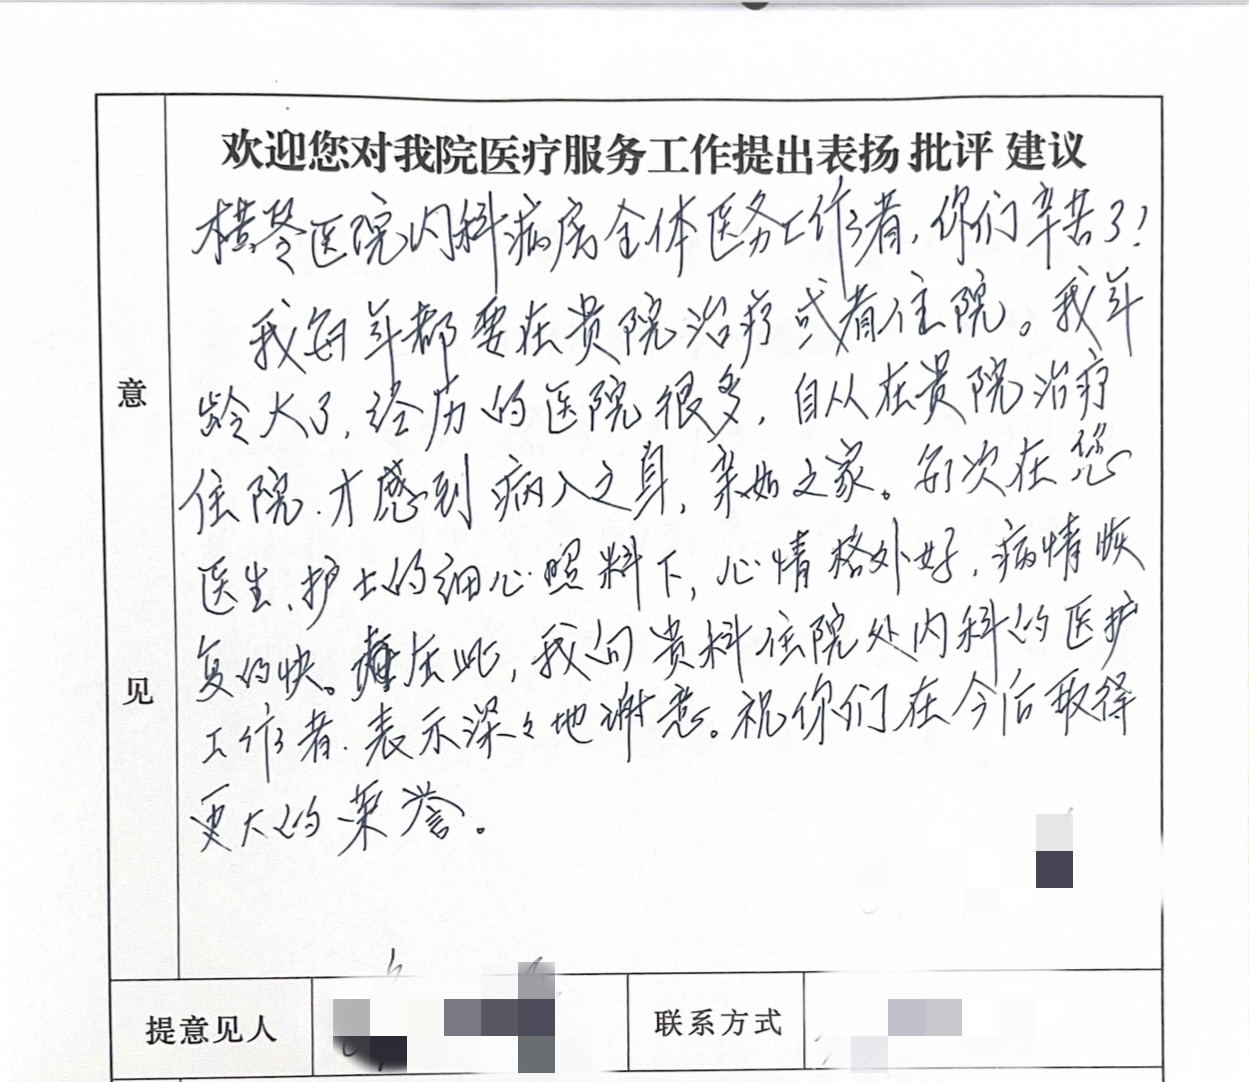 欢迎您对我院医疗服务工作提出表扬 批评 建议
横琴医院内科病房全体医务工作者，你们辛苦了！
我每年都要在贵院治疗或者住院。我年
龄大了，经历的医院很多，自从在贵院治疗
住院.才感到病人之身，亲如之家。每次在您
医生、护士的细心照料下，心情格外好，病情恢
复的快。在此，我向贵科住院处内科的医护
工作者.表示深々地谢意。祝你们在今后取得
更大的荣誉。
意
见
提意见人
联系方式